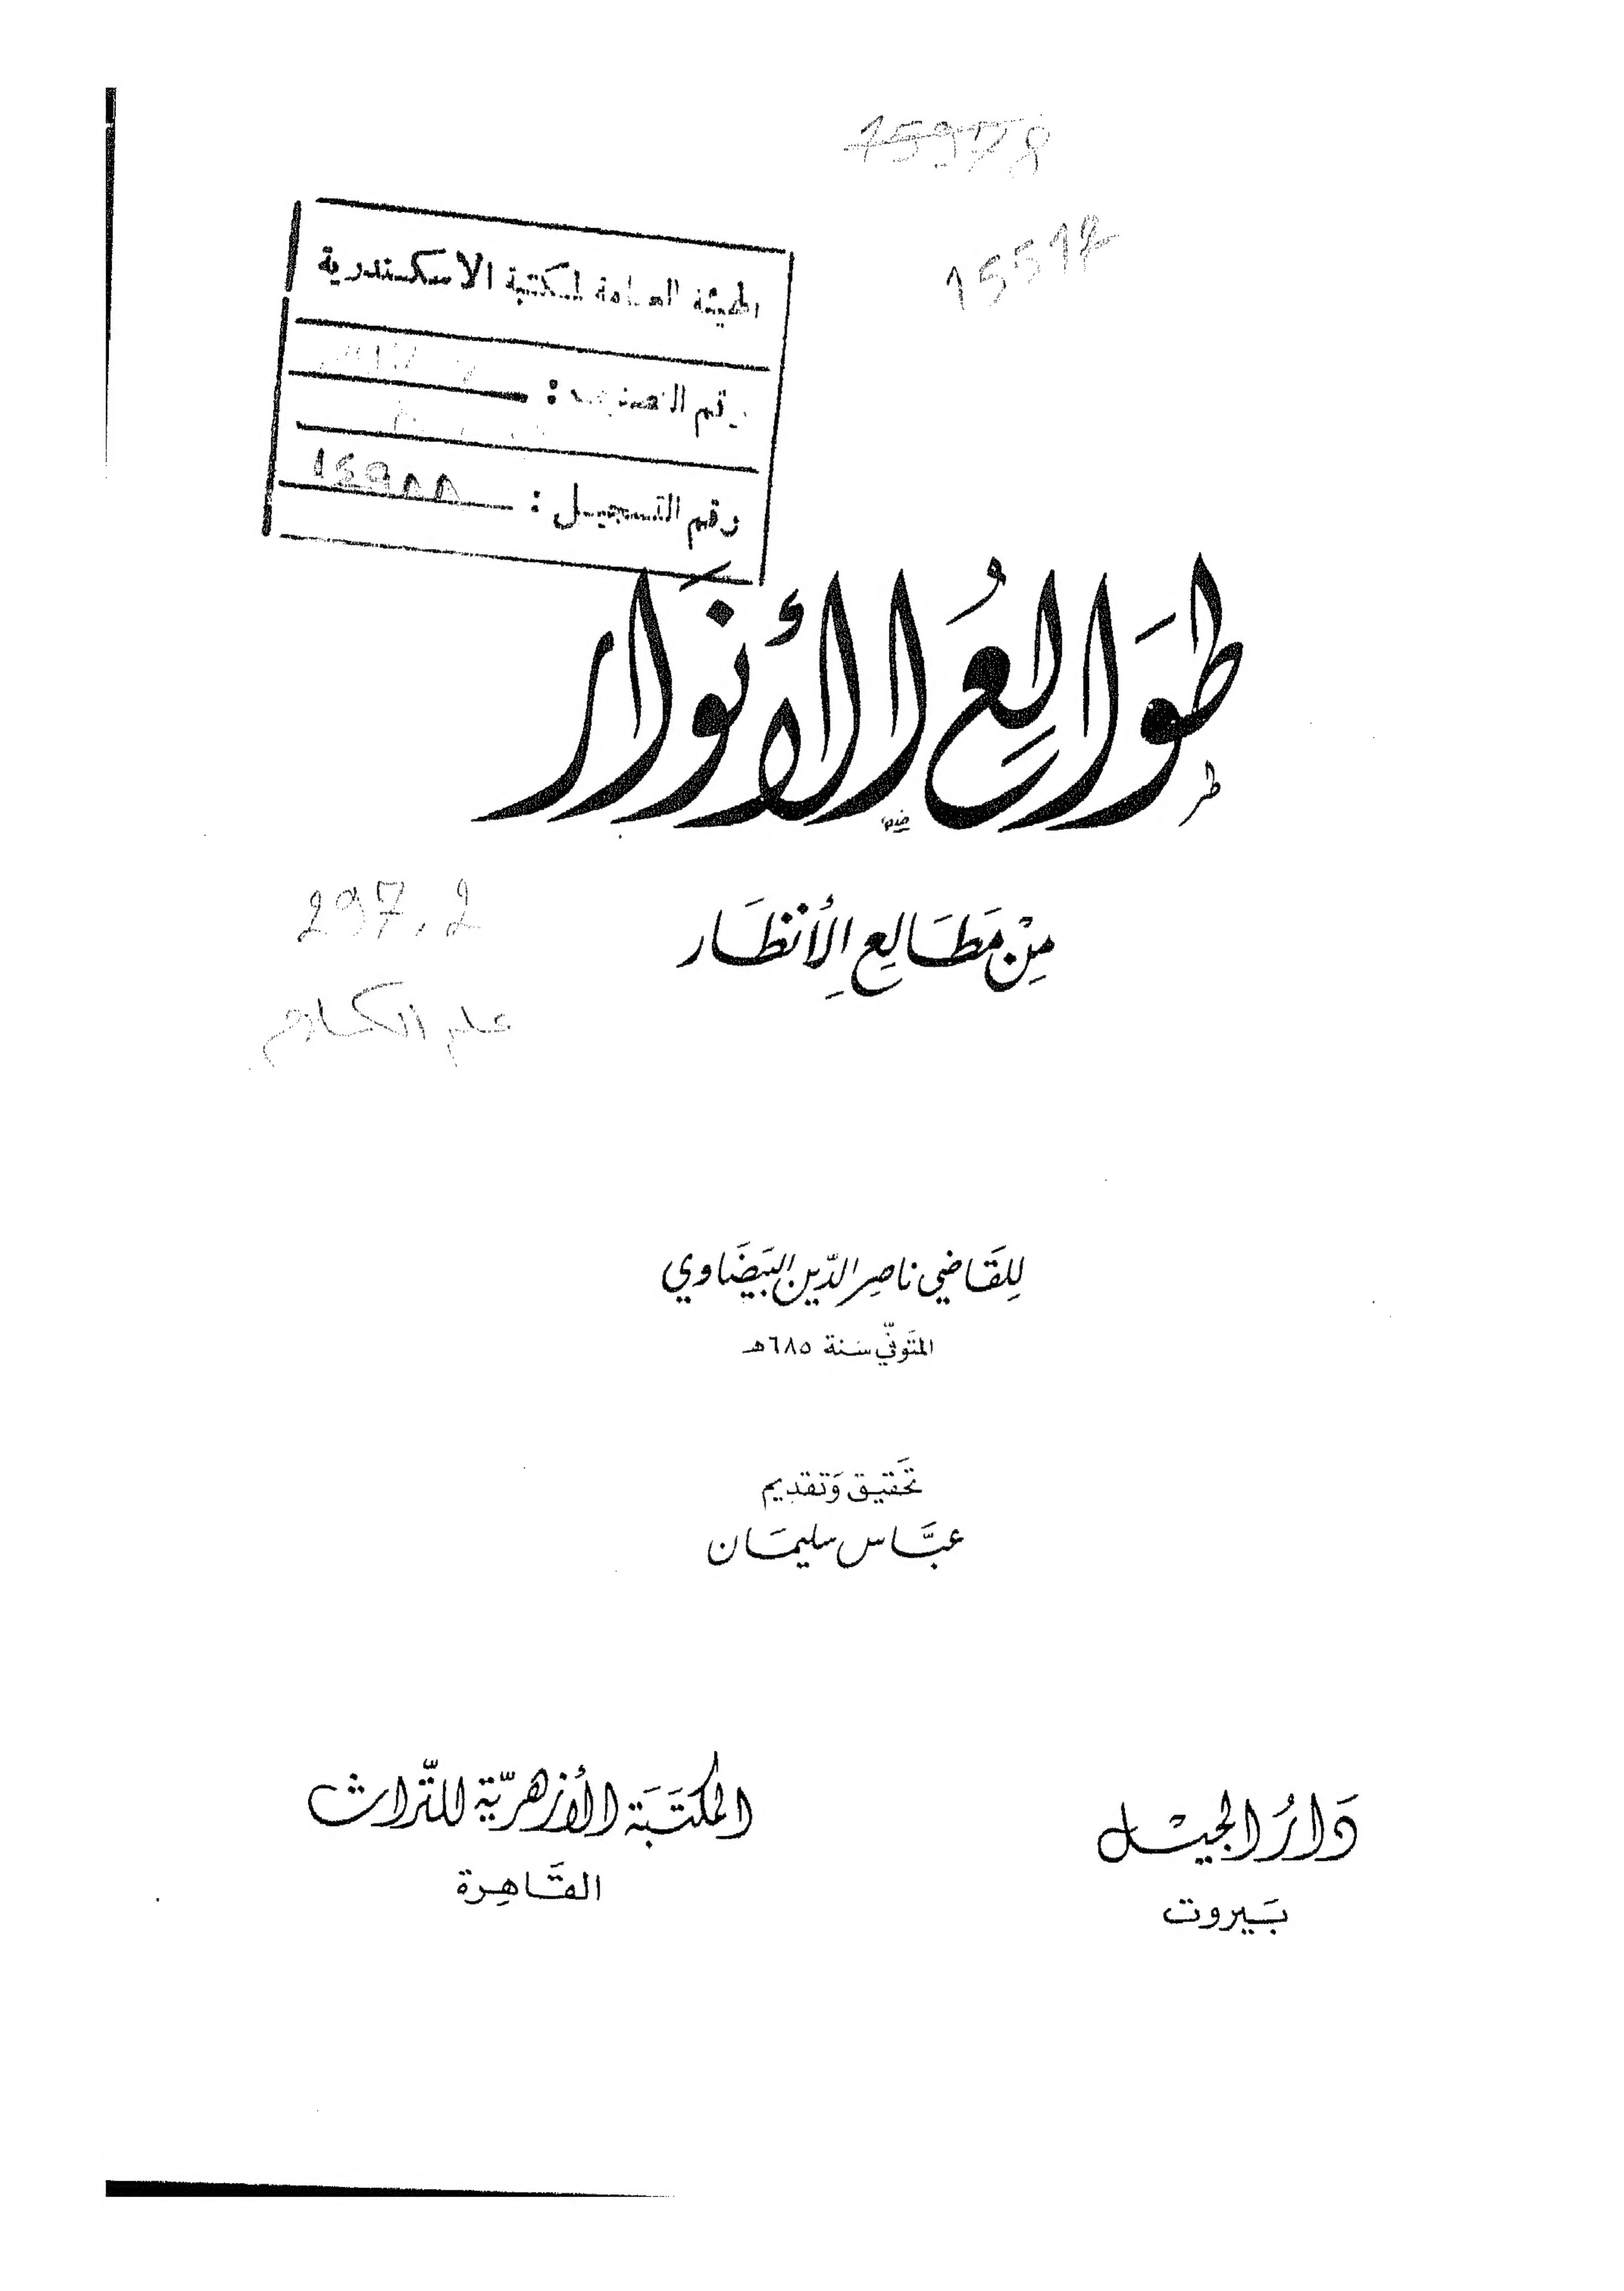 15978
15517
الهيئة العامة لمكتبة الاسكندرية
رقم التصنيف :
رقم التسجيل : ١٤٩٨٨
طَوَالِعُ الأَنْوَار
مِنْ مَطَالِعِ الأَنظَار
297.2
علم الكلام
لِلقَاضِي نَاصِر الدّين البَيضَاوي
المتَوفّي سَنة ٦٨٥هـ
تحَقيق وَتقديم
عبَّاس سليمَان
دَارُ الجيْل
بَيروت
المكتَبَة الأزهَريّة للتّراث
القَاهِرة